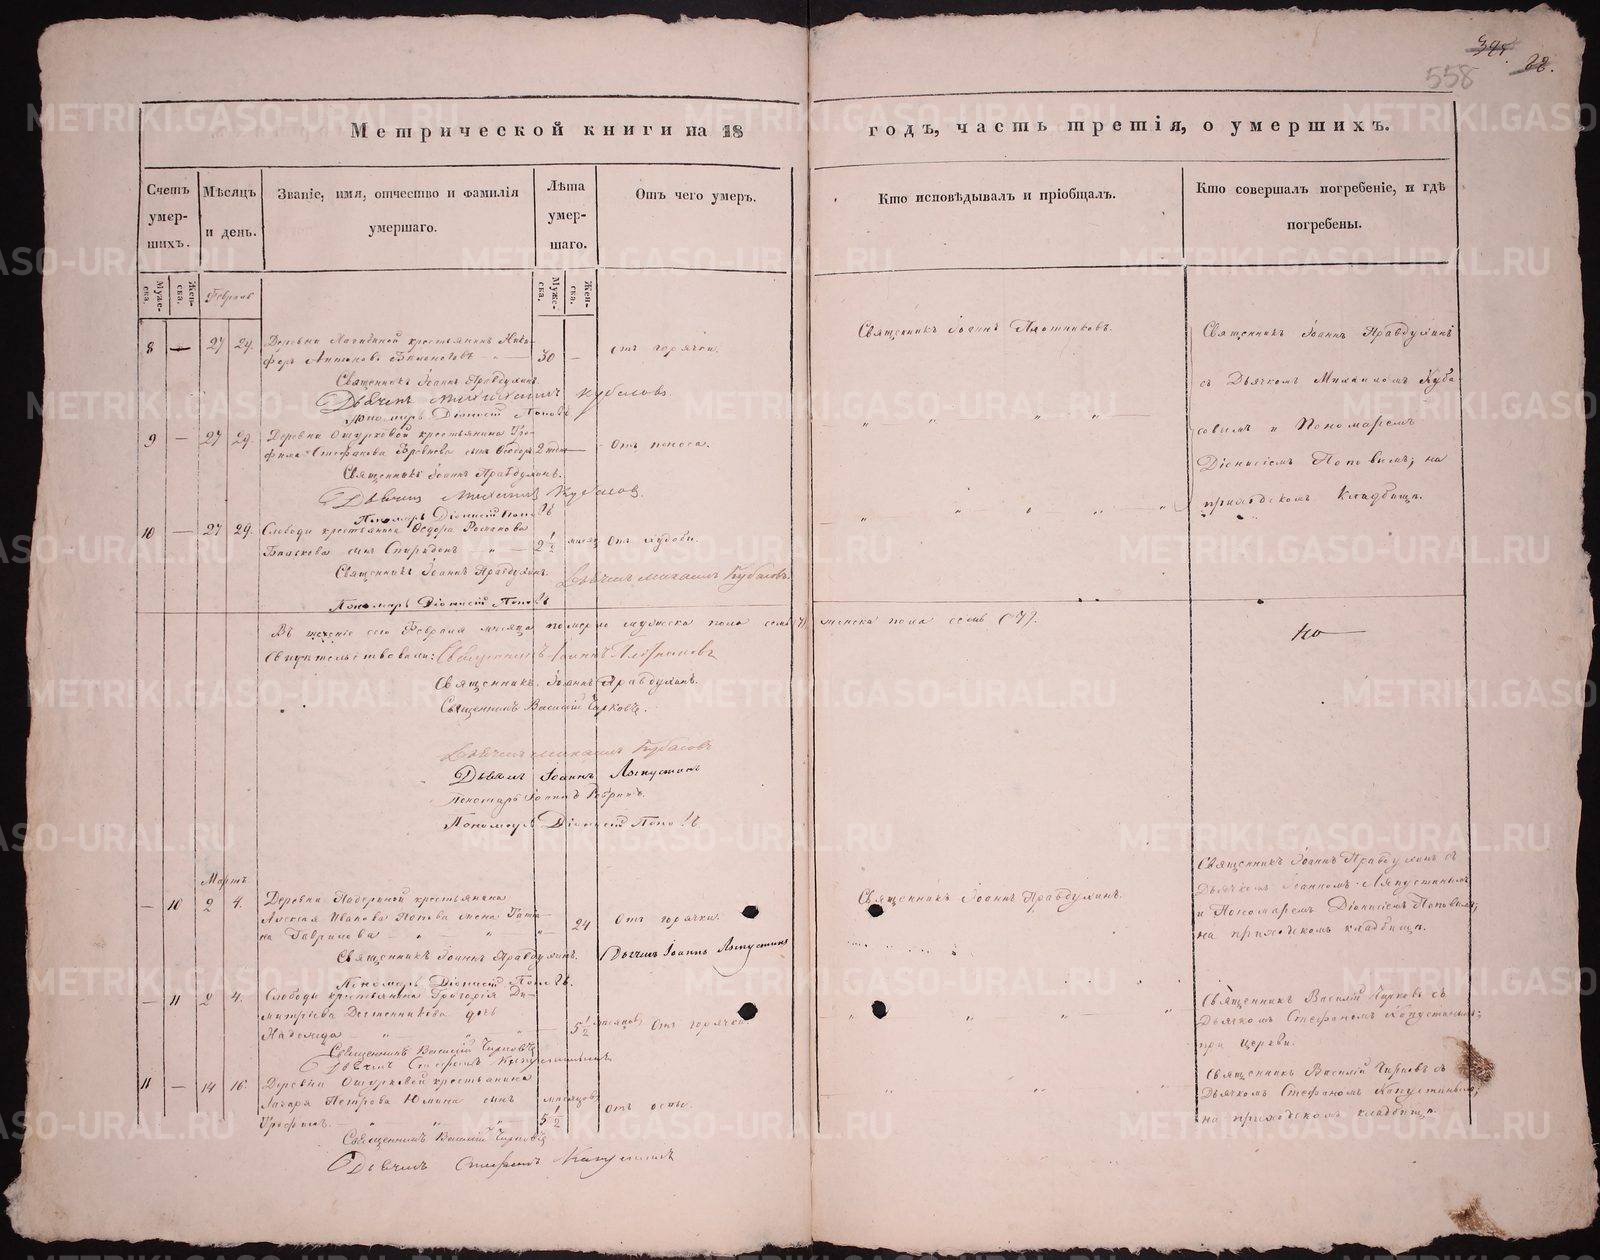 558
Метрической книги на 18
годъ, часть третія, о умершихъ.
Счетъ умер-шихъ.
Мѣсяцъ и день.
Званіе, имя, отчество и фамилія умершаго.
Лѣта умер-шаго.
Отъ чего умеръ.
Кто исповѣдывалъ и пріобщалъ.
Кто совершалъ погребеніе, и гдѣ погребены.
Муже-ска.
Жен-ска.
Муже-ска.
Жен-ска.
Февраль
8 — 27 29. Деревни крестьянинъ Ники-
форъ Антоновъ 30 — отъ горячки.
Священникъ Іоаннъ Плотниковъ.
Священникъ Іоаннъ Правдухинъ
съ Дьячкомъ Михаиломъ Куба-
совымъ и Пономаремъ
Діонисіемъ Поповымъ; на
приходскомъ кладбищѣ.
Священникъ Іоаннъ Правдухинъ.
Дьячекъ Михаилъ Кубасовъ.
Пономарь Діонисій Поповъ
9 — 27 29. Деревни Ошурковой крестьянина Тро-
фима Стефанова сынъ Ѳеодоръ 2 Отъ поноса.
Священникъ Іоаннъ Правдухинъ.
Дьячекъ Михаилъ Кубасовъ.
Пономарь Діонисій Поповъ
10 — 27 29. Слободы крестьянина Ѳедора Романова
сынъ Спиридонъ 2 1/2 мѣсяц. Отъ худобы.
Священникъ Іоаннъ Правдухинъ. Дьячекъ Михаилъ Кубасовъ.
Пономарь Діонисій Поповъ
Въ теченіе сего Февраля мѣсяца померло мужеска пола женска пола семь (7).
Свидѣтельствовали: Священникъ Іоаннъ Плотниковъ
Священникъ Іоаннъ Правдухинъ.
Священникъ Василій Чирковъ.
Дьячекъ Михаилъ Кубасовъ
Дьячекъ Іоаннъ Ляпустинъ
Пономарь Іоаннъ
Пономарь Діонисій Поповъ
Мартъ
— 10 2 4. Деревни крестьянина
Алексія Иванова Попова жена Татья-
на Гаврилова 24 Отъ горячки.
Священникъ Іоаннъ Правдухинъ.
Священникъ Іоаннъ Правдухинъ съ
Дьячкомъ Іоанномъ Ляпустинымъ
и Пономаремъ Діонисіемъ Поповымъ;
на приходскомъ кладбищѣ.
Священникъ Іоаннъ Правдухинъ. Дьячекъ Іоаннъ Ляпустинъ
Пономарь Діонисій Поповъ.
— 11 2 4. Слободы крестьянина Григорія Ди-
митріева дочь
Надежда 5 1/2 мѣсяцовъ Отъ горячки.
Священникъ Василій Чирковъ съ
Дьячкомъ Стефаномъ Капустинымъ;
при церкви.
Священникъ Василій Чирковъ
Дьячекъ Стефанъ Капустинъ
11 — 14 16. Деревни Ошурковой крестьянина
Лазаря Петрова Юмина сынъ мѣсяцовъ
Трофимъ. 5 1/2 отъ оспы.
Священникъ Василій Чирковъ съ
Дьячкомъ Стефаномъ Капустинымъ;
на приходскомъ кладбищѣ.
Священникъ Василій Чирковъ
Дьячекъ Стефанъ Капустинъ
METRIKI.GASO-URAL.RU